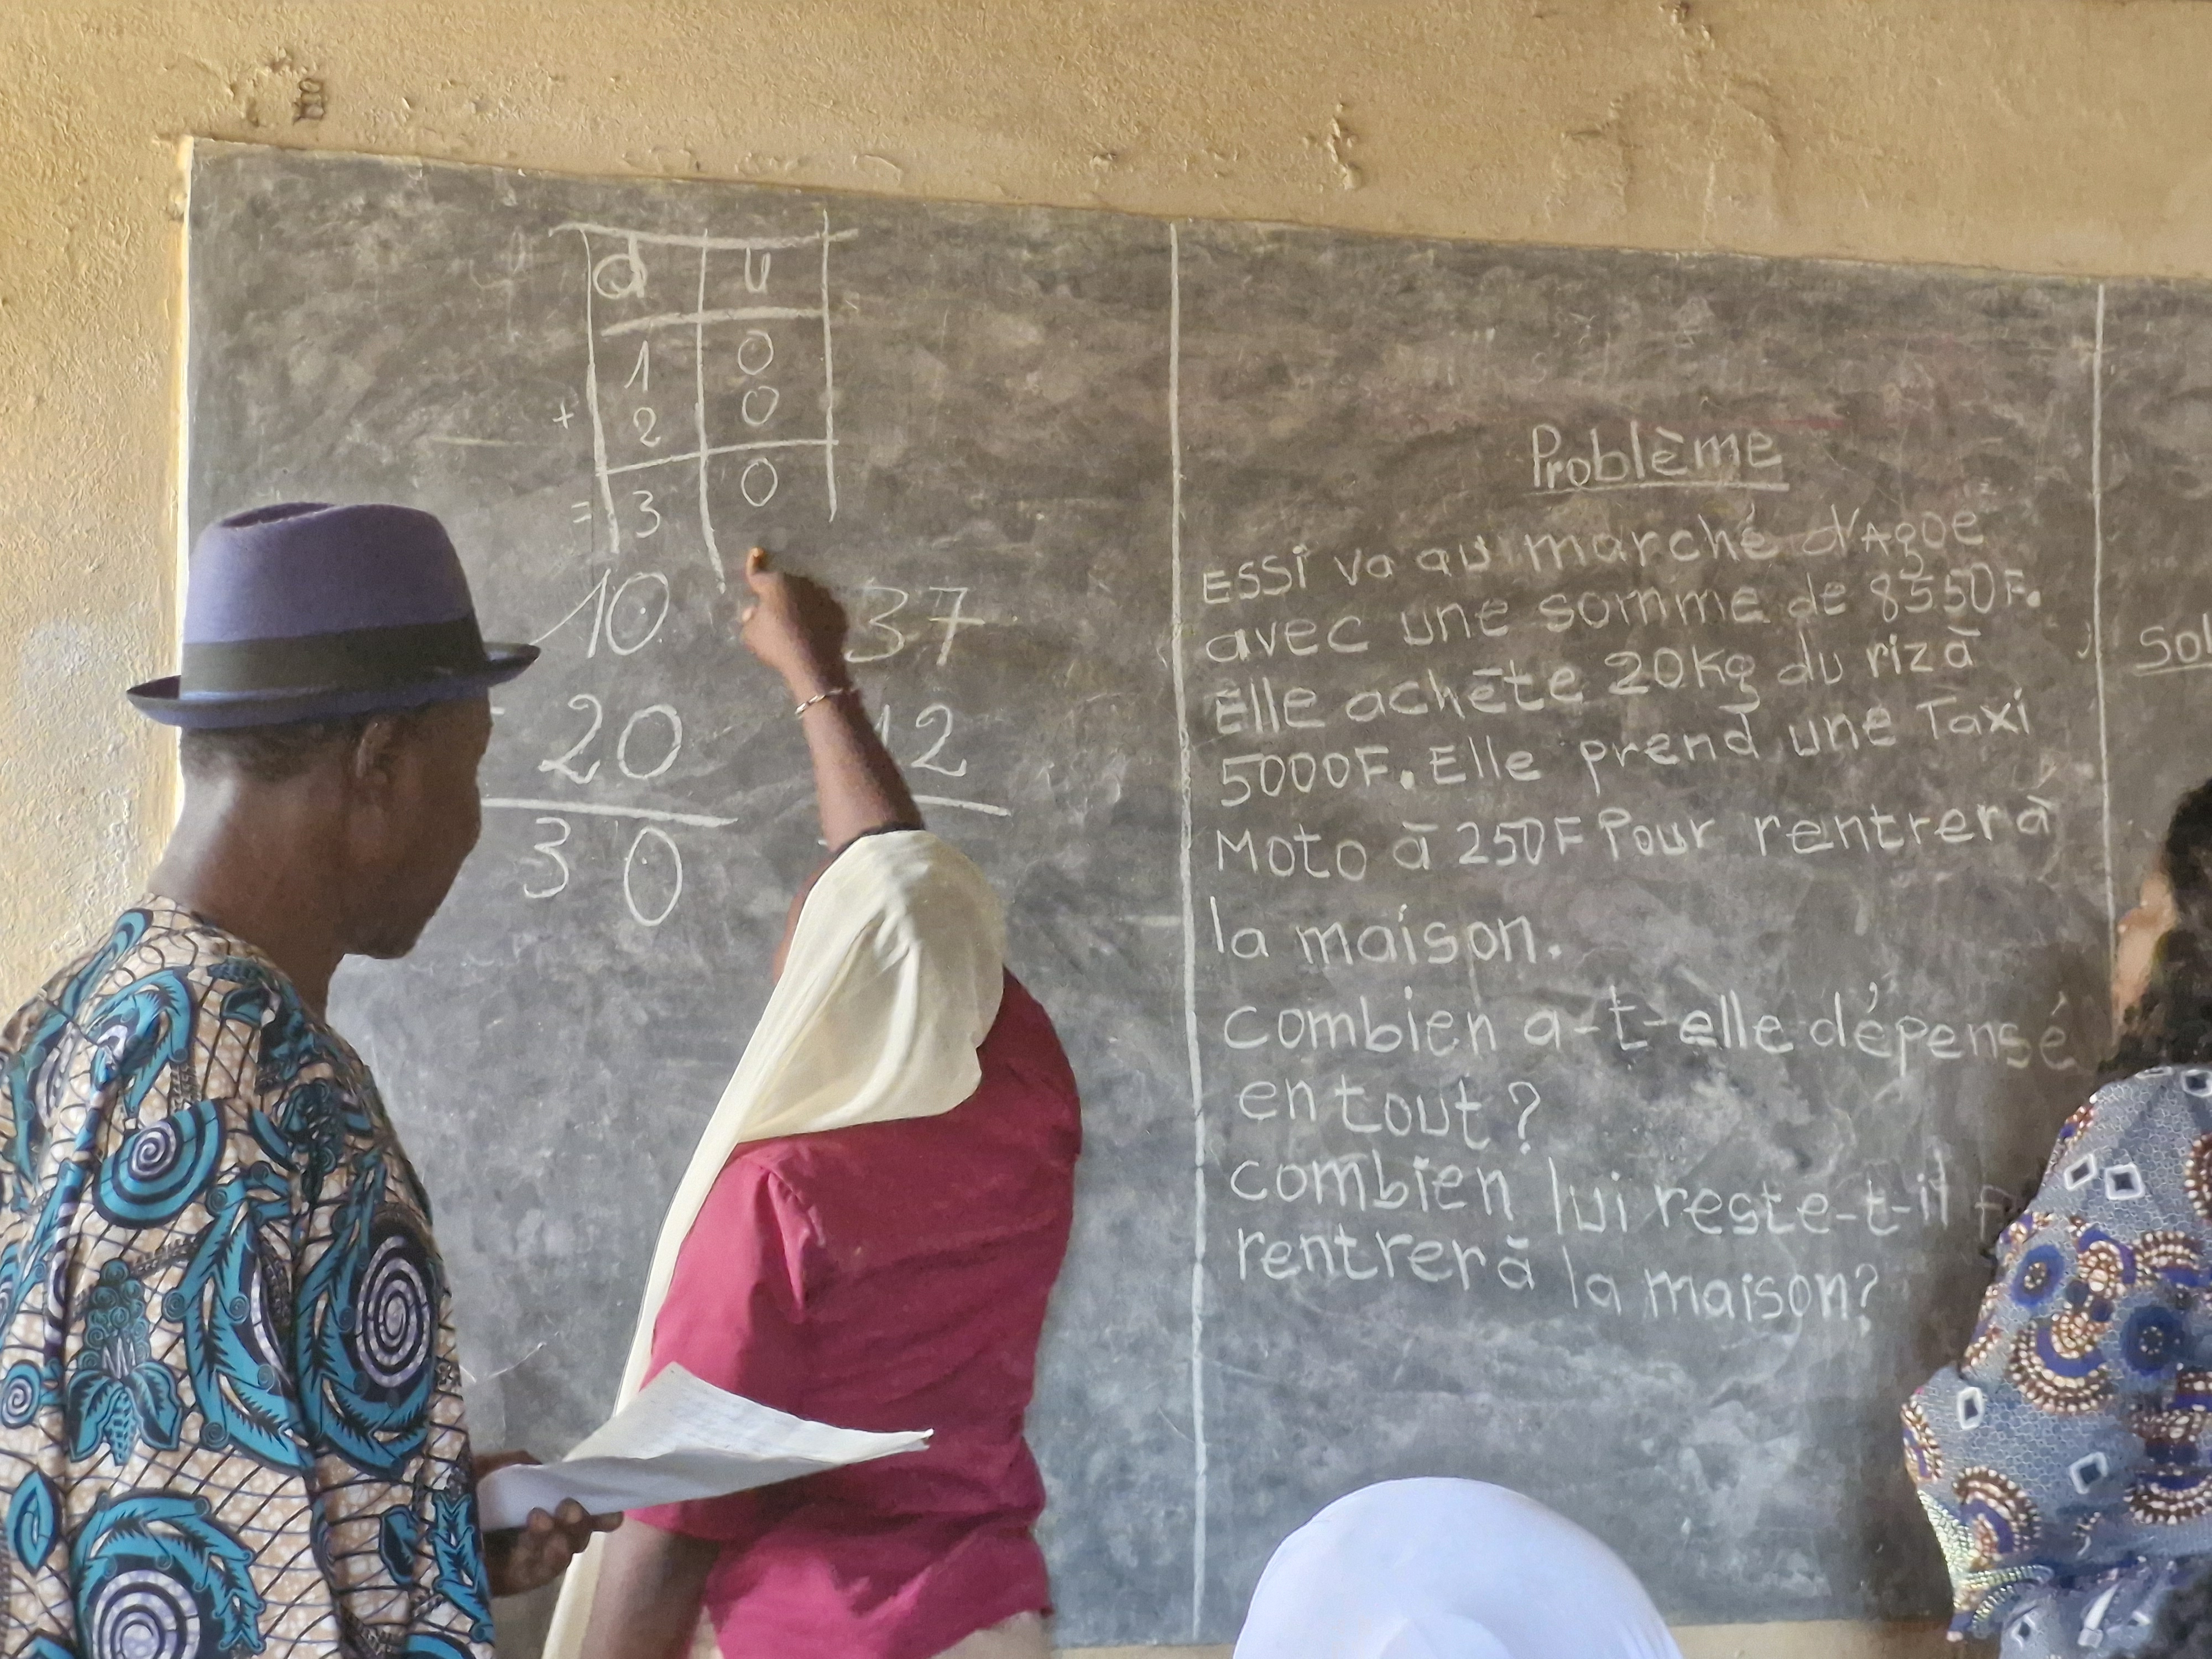 d u
1 0
+ 2 0
= 3 0
10
20
30
37
12
Problème
ESSi va au marché d'Agoe
avec une somme de 8550F.
Elle achète 20Kg du riz à
5000F. Elle prend une Taxi
Moto à 250F Pour rentrer à
la maison.
combien a-t-elle dépensé
en tout?
combien lui reste-t-il
rentrer à la maison?